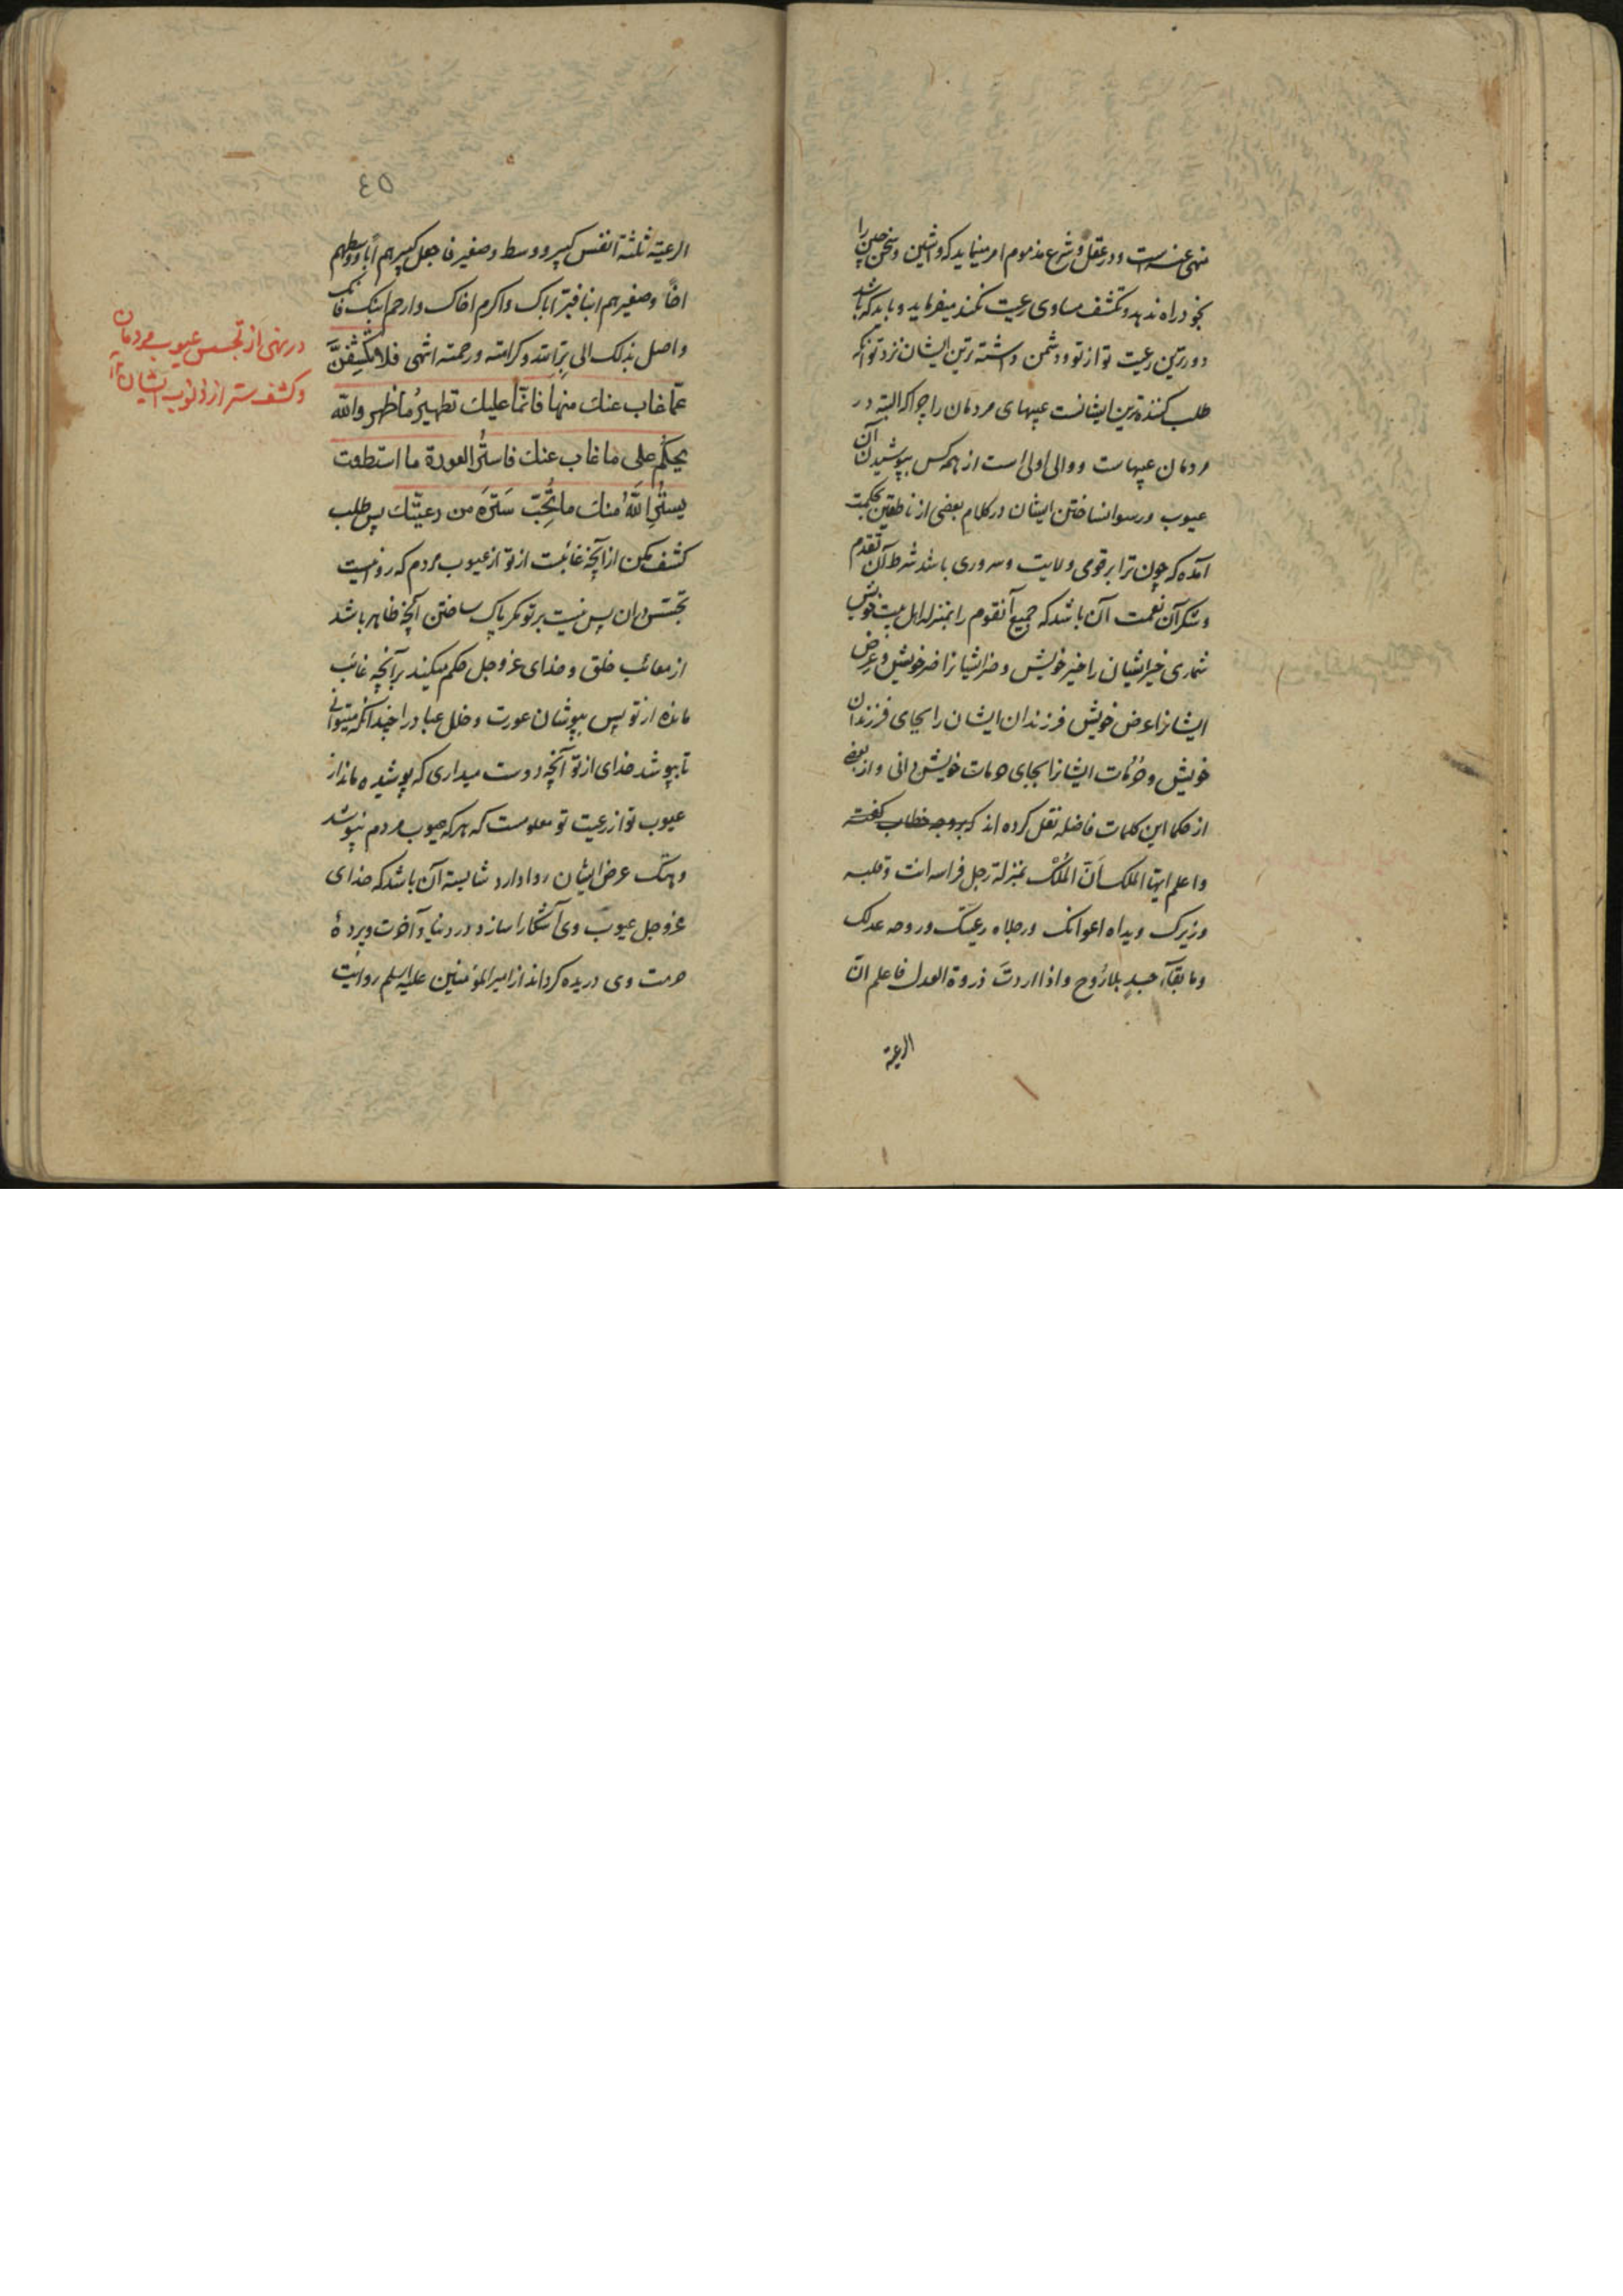 منهی عنه است و در عقل و شرع مذموم امر مینماید که واشین و سخن چین را
بخود راه ندهد و بکشف مساوی رعیت نکند میفرماید و باید که باشد
دورترین رعیت تو از تو و دشمن داشته ترین ایشان نزد تو آنکه
طلب کننده ترین ایشانست عیبهای مردمان را چرا که البته در
مردمان عیبهاست و والی اولی است از همه کس بپوشیدن آن
عیوب و رسوا نساختن ایشان در کلام بعضی از ناطقین بحکمت
آمده که چون ترا بر قومی ولایت و سروری باشد شرط آن تقدم
و شکر آن نعمت آن باشد که جمیع آنقوم را بمنزله اهل بیت خویش
شماری خیر ایشان را خیر خویش و ضر ایشانرا ضر خویش و عرض
ایشانرا عرض خویش فرزندان ایشان را بجای فرزندان
خویش و حرمات ایشانرا بجای حرمات خویش دانی و از بعضی
از حکما این کلمات فاضله نقل کرده اند که بر وجه خطاب گفته
واعلم ایها الملک انّ الملک بمنزلة رجل فراسه انت وقلبه
وزیرک ویداه اعوانک ورجلاه رعیتک وروحه عدلک
وما بقآء جسدٍ بلا رُوح واذا اردتَ ذروة العدل فاعلم انّ
الرعیة
٤٥
الرعیة ثلثة انفس کبیر ووسط وصغیر فاجعل کبیرهم ابا واوسطهم
اخاً وصغیرهم ابنا فبرّ اباک واکرم اخاک وارحم ابنک فانک
واصل بذلک الی برّ الله وکرامته ورحمته انتهی فلا تکشِفنَّ
عمّا غاب عنك منها فانّما علیك تطهیرُ ما ظهر والله
یحکم علی ما غاب عنك فاستُر العورة ما استطعت
یستُرِ اللهُ منك ما تُحِبّ سَترَه من رعیتك پس طلب
کشف مکن از آنچه غائبست از تو از عیوب مردم که روا نیست
تجسّس در آن پس نیست بر تو مگر پاک ساختن آنچه ظاهر باشد
از معائب خلق و خدای عز و جل حکم میکند بر آنچه غائب
مانده از تو پس بپوشان عورت و خلل عباد را چندانکه میتوانی
تا بپوشد خدای از تو آنچه دوست میداری که پوشیده ماند از
عیوب تو از رعیت تو معلومست که هر که عیوب مردم نپوشد
و هتک عرض ایشان روا دارد شایسته آن باشد که خدای
عز و جل عیوب وی آشکارا سازد در دنیا و آخرت و پردهٔ
حرمت وی دریده گرداند از امیر المؤمنین علیه السلم روایت
در نهی از تجسس عیوب مردمان
و کشف ستر از ذنوب ایشان